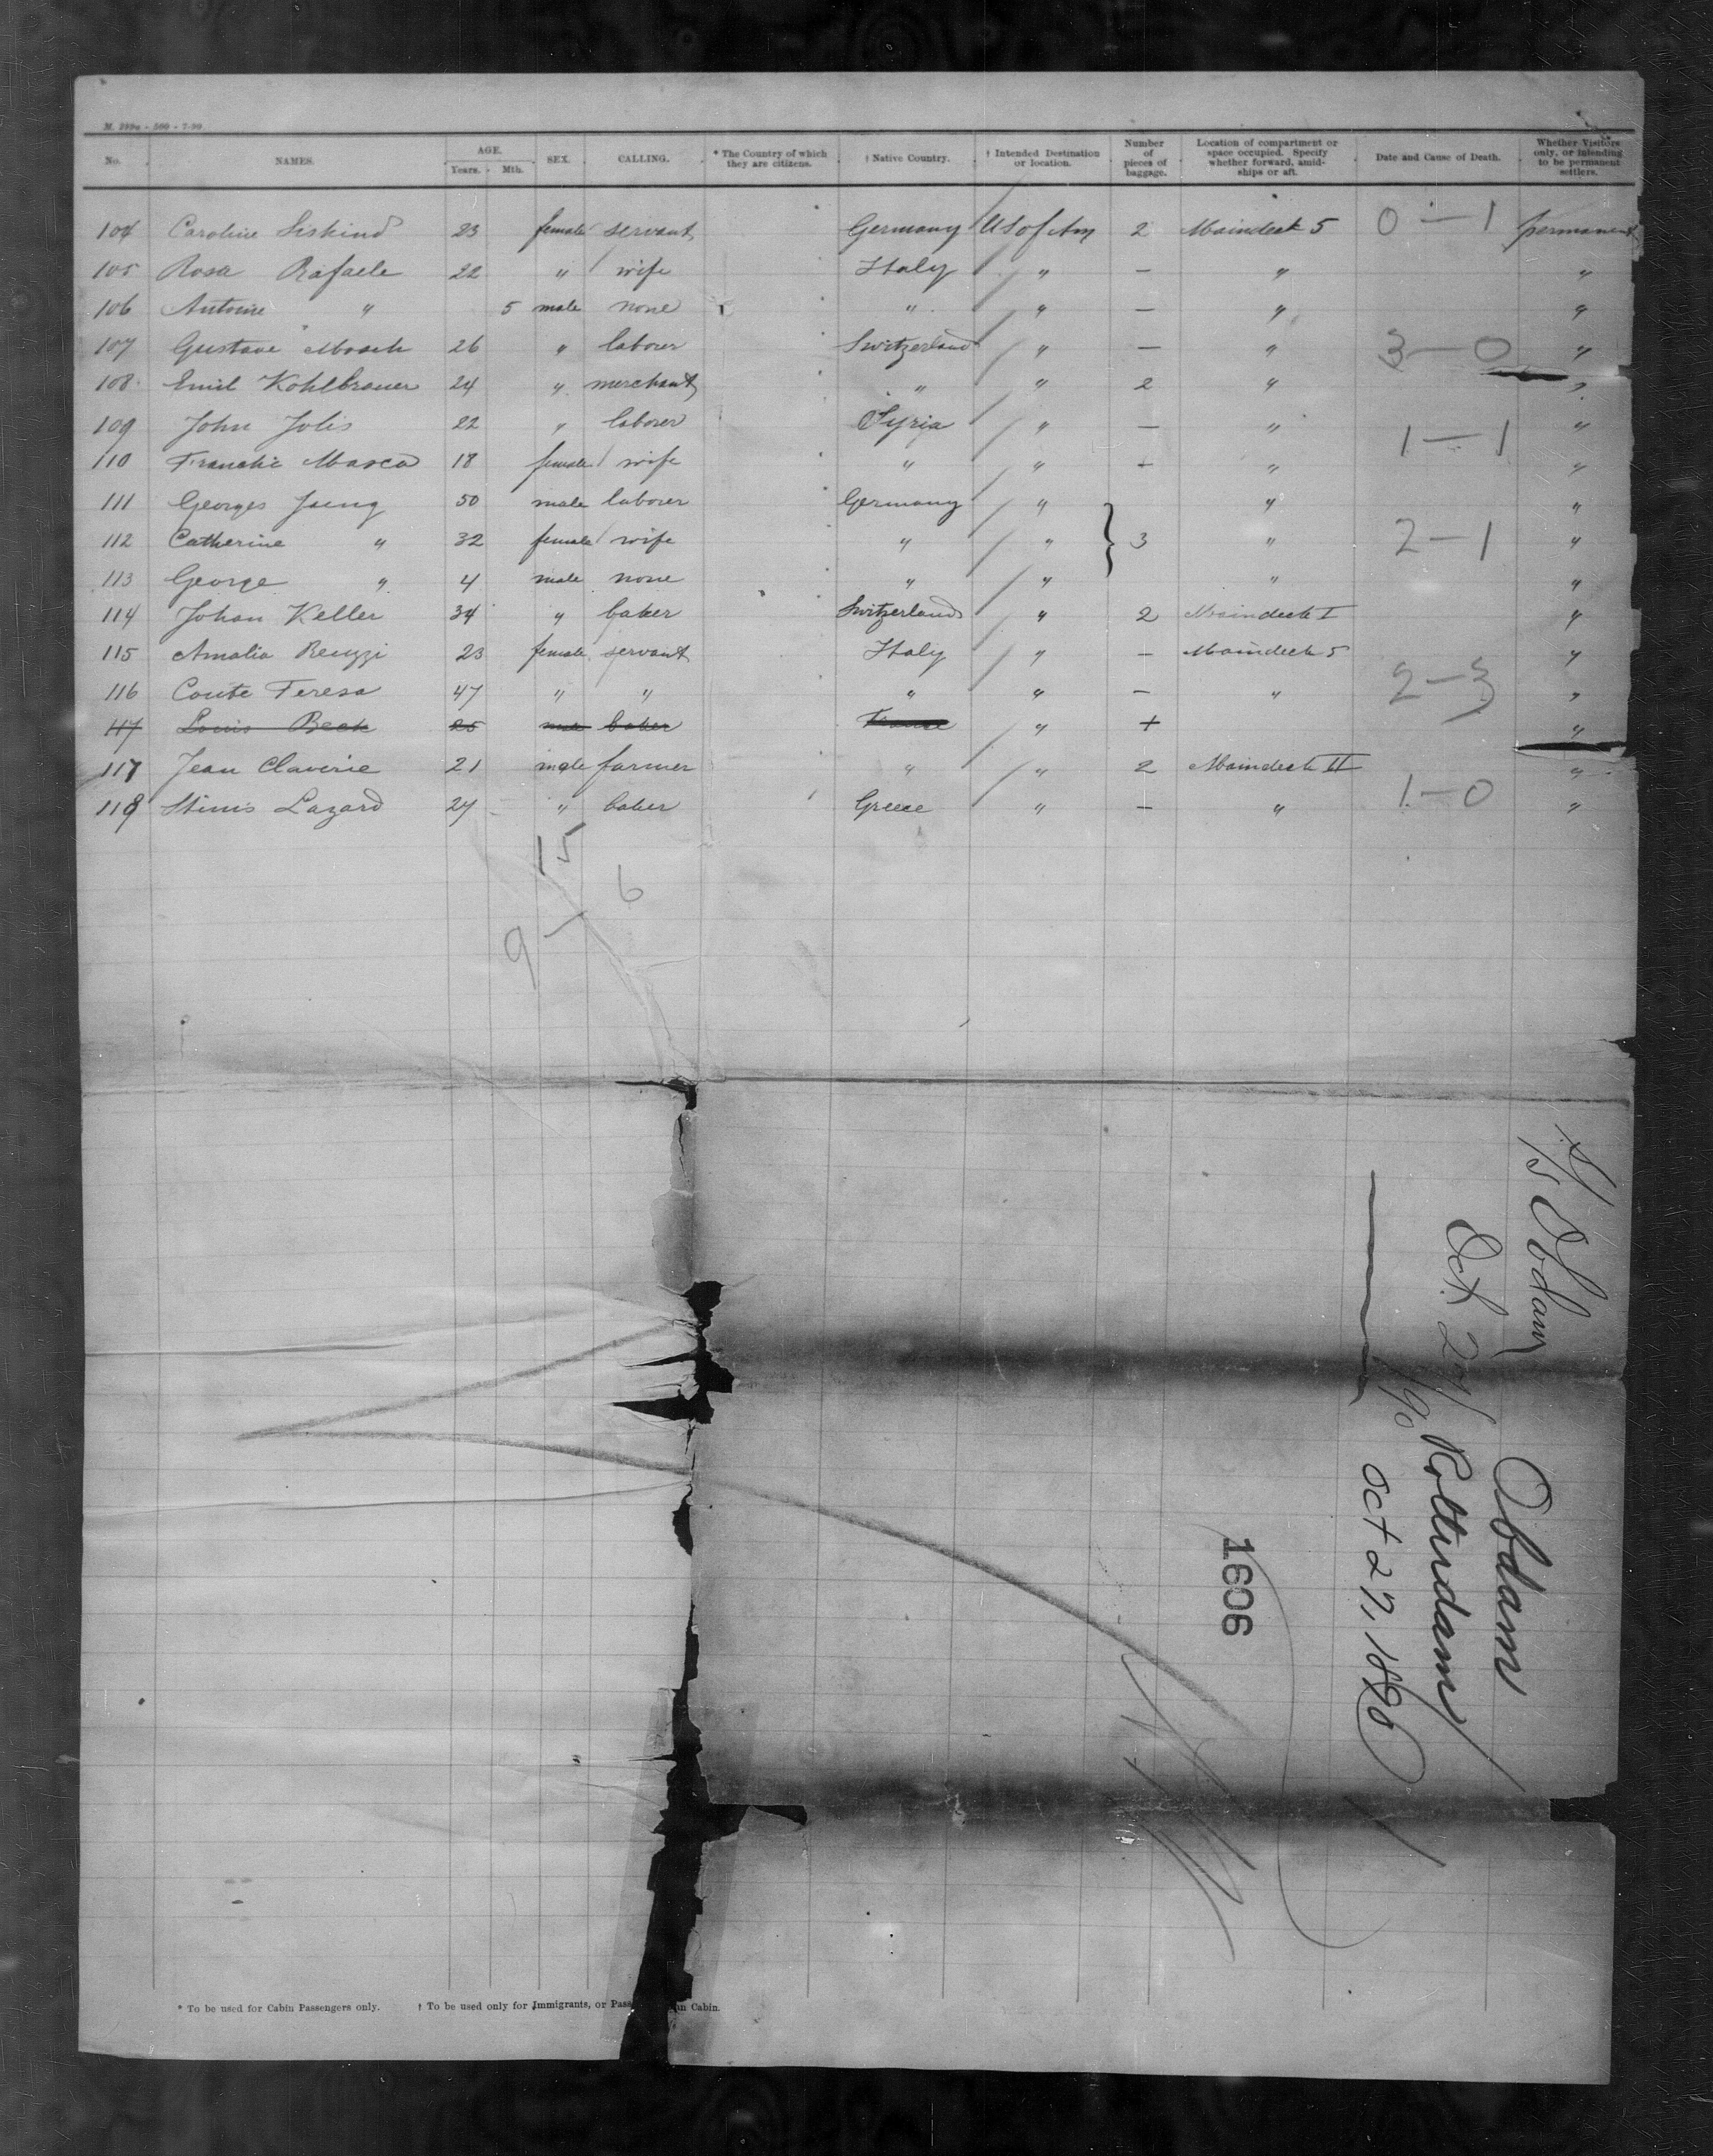 M. 299a - 500 - 7-90
No. NAMES. AGE. Years. Mth. SEX. CALLING. * The Country of which they are citizens. † Native Country. † Intended Destination or location. Number of pieces of baggage. Location of compartment or space occupied. Specify whether forward, amidships or aft. Date and Cause of Death. Whether Visitors only, or intending to be permanent settlers.
104 Caroline Siskind 23 female servant Germany US of Am 2 Maindeck 5 0-1 permanent
105 Rosa Rafaele 22 " wife Italy " - " "
106 Antoine " 5 male none " " - " "
107 Gustave Mosch 26 " laborer Switzerland " - " 3-0 "
108 Emil Kohlbrauer 24 " merchant " " 2 " "
109 John Jolis 22 " laborer Syria " - " "
110 Masca 18 female wife " " - " 1-1 "
111 Georges Jung 50 male laborer Germany " " "
112 Catherine " 32 female wife " " 3 " 2-1 "
113 George " 4 male none " " " "
114 Johan Keller 34 " baker Switzerland " 2 Maindeck I "
115 Amalia Renzzi 23 female servant Italy " - Maindeck 5 "
116 Conte Teresa 47 " " " " - " 2-3 "
117 Louis Beck 25 male baker France " + "
117 Jean Claverie 21 male farmer " " 2 Maindeck II "
118 Stinis Lazard 27 " baker Greece " - " 1-0 "
15
6
9
S/S Obdam
Oct 27/90
Obdam
Rotterdam
Oct 27, 1890
1606
* To be used for Cabin Passengers only. † To be used only for Immigrants, or Pass an Cabin.